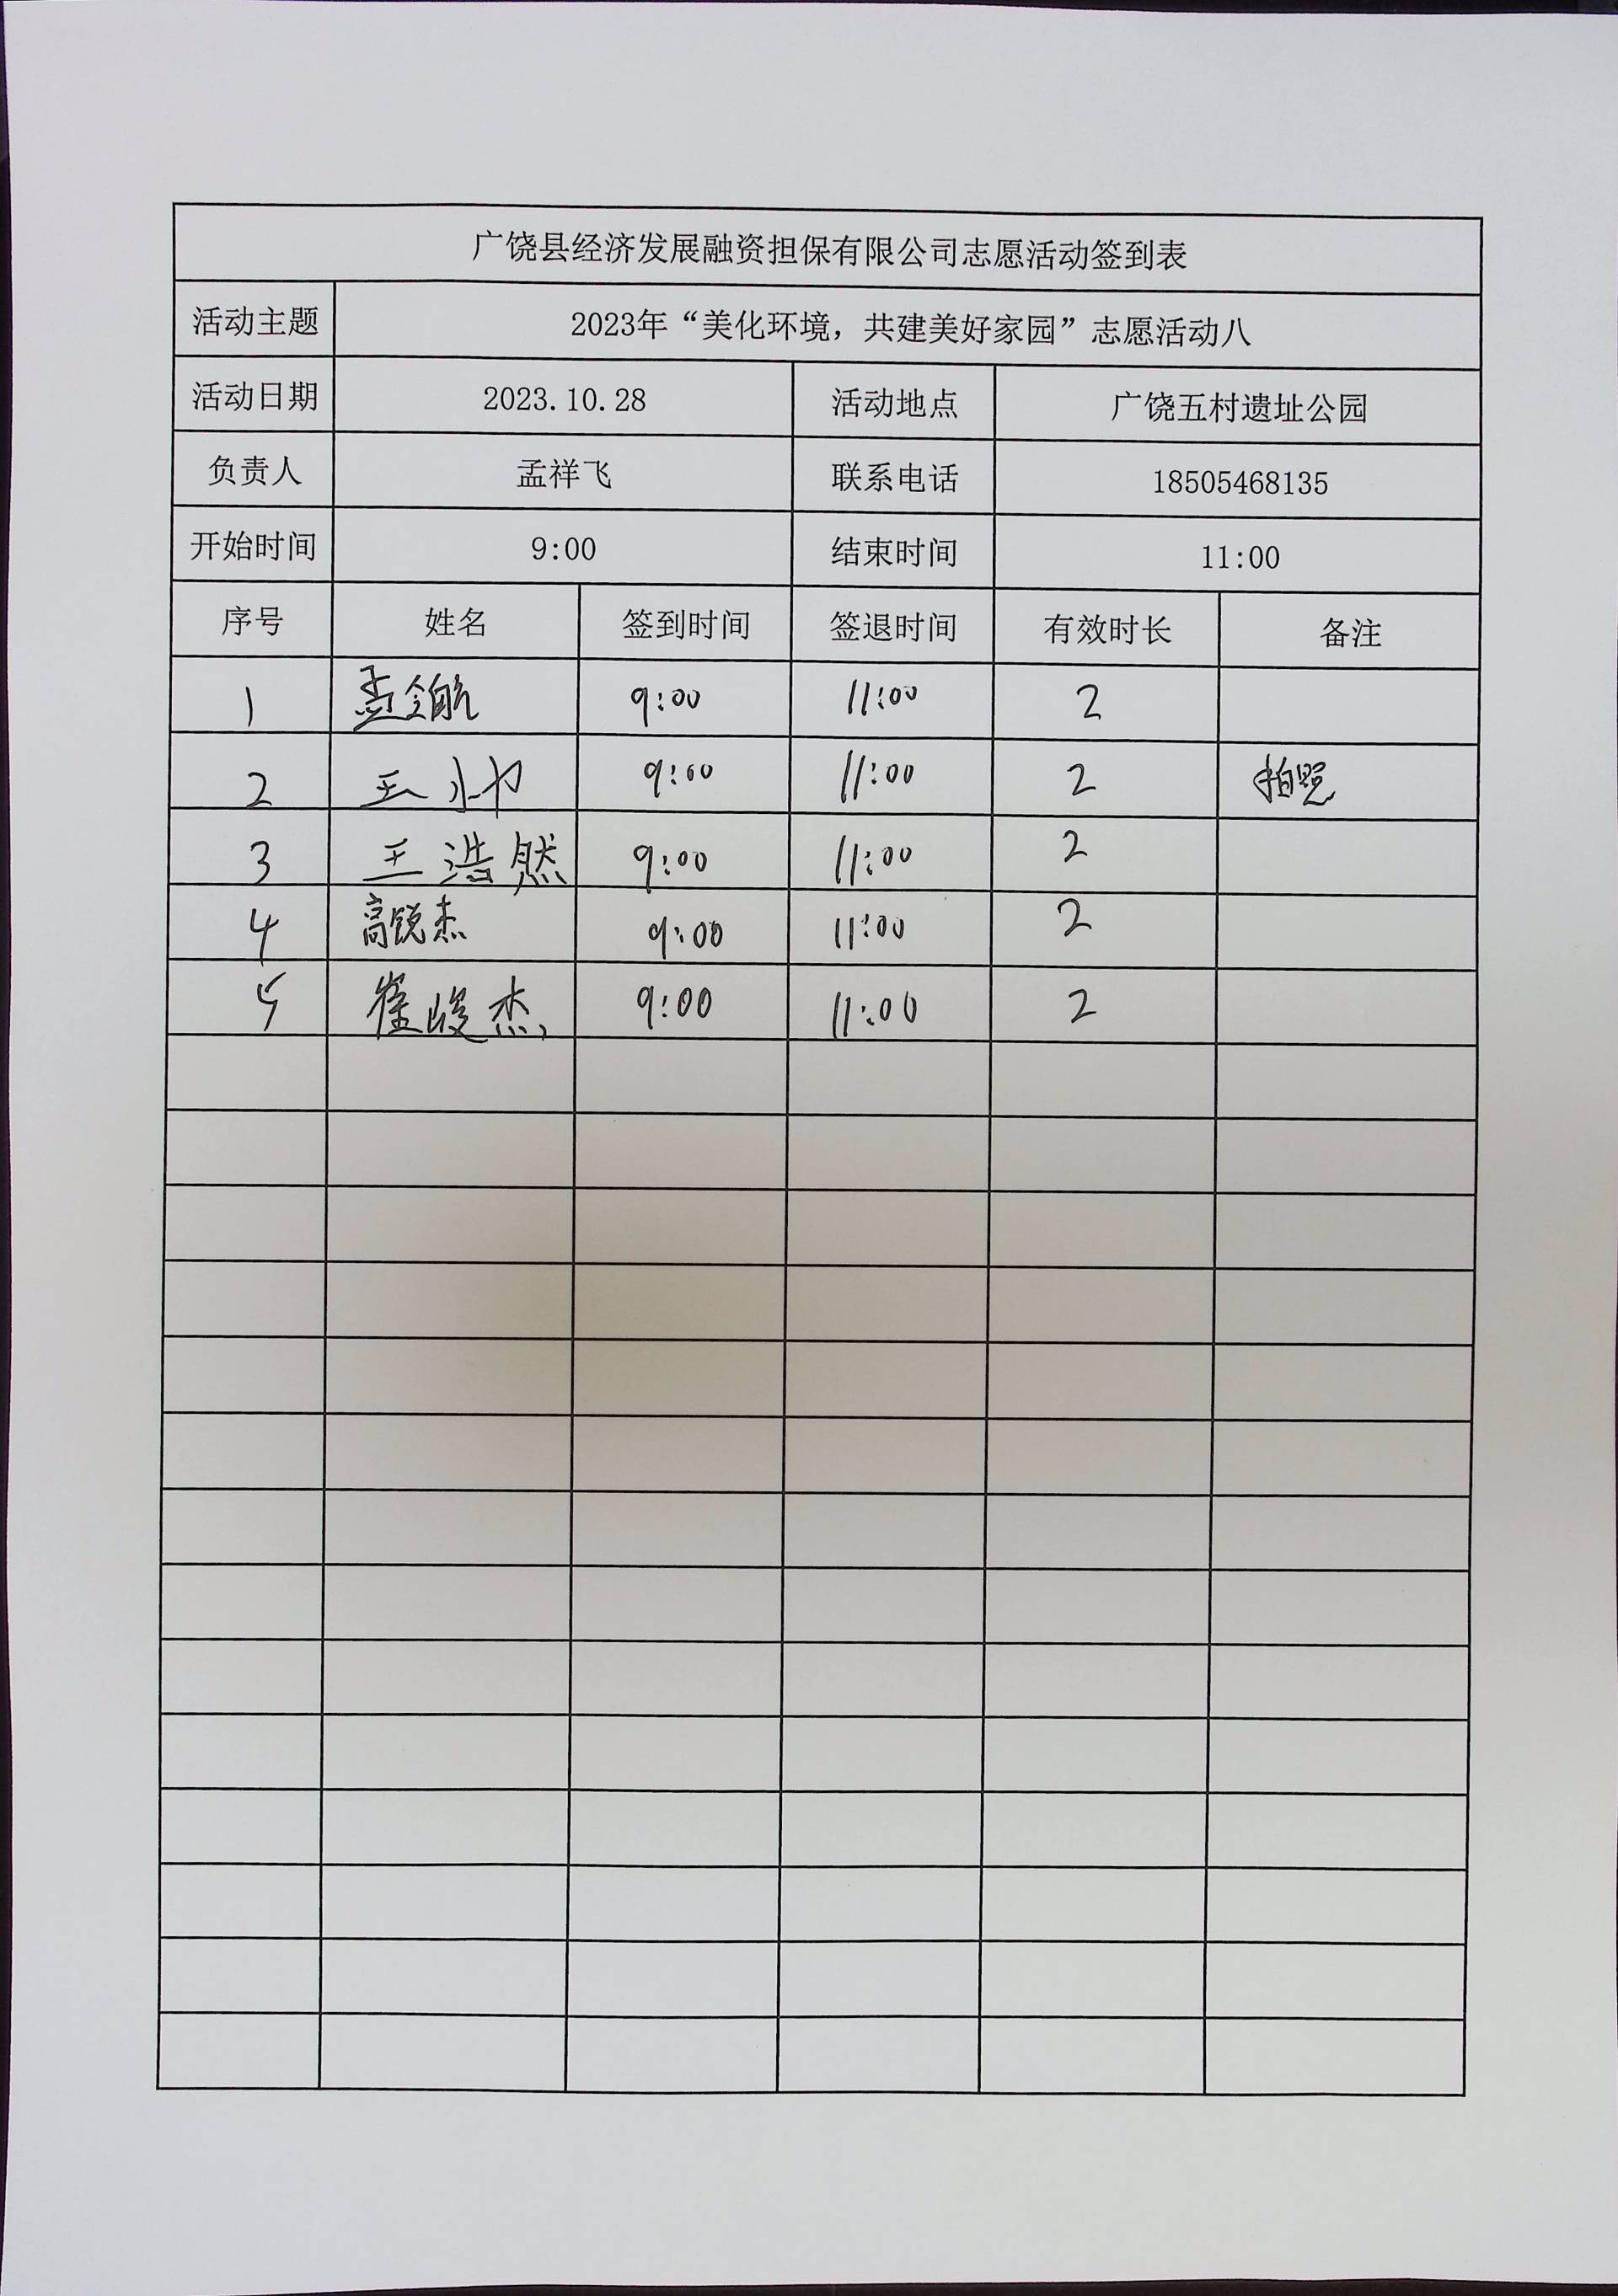 广饶县经济发展融资担保有限公司志愿活动签到表
活动主题 2023年“美化环境，共建美好家园”志愿活动八
活动日期 2023.10.28 活动地点 广饶五村遗址公园
负责人 孟祥飞 联系电话 18505468135
开始时间 9:00 结束时间 11:00
序号 姓名 签到时间 签退时间 有效时长 备注
1 孟令航 9:00 11:00 2
2 王帅 9:00 11:00 2 拍照
3 王浩然 9:00 11:00 2
4 高锐杰 9:00 11:00 2
5 崔峻杰 9:00 11:00 2